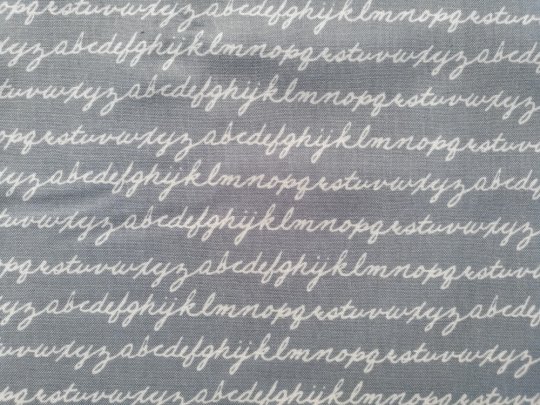 opqrstuvwxyzabcdefghijklmnopqrstuv
xyzabcdefghijklmnopqrstuvwxyzabcde
tuvwxyzabcdefghijklmnopqrstuvwxyz
opqrstuvwxyzabcdefghijklmnopqrstu
xyzabcdefghijklmnopqrstuvwxyzabcde
tuvwxyzabcdefghijklmnopqrstuvwxyz
opqrstuvwxyzabcdefghijklmnopqrstu
xyzabcdefghijklmnopqrstuvwxyzabcd
tuvwxyzabcdefghijklmnopqrstuvwxyz
opqrstuvwxyzabcdefghijklmnopqrstu